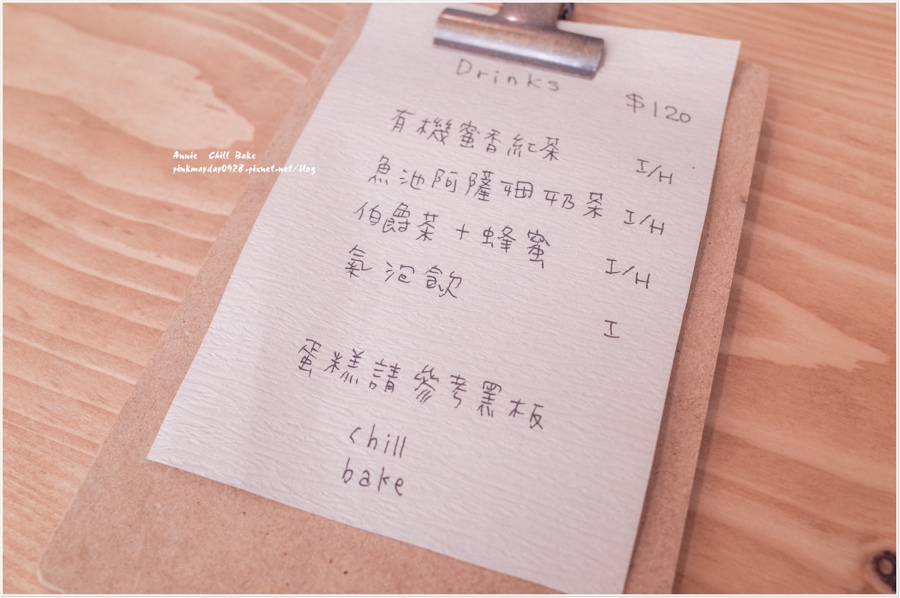 Drinks
$120
有機蜜香紅茶 I/H
魚池阿薩姆奶茶 I/H
伯爵茶+蜂蜜 I/H
氣泡飲 I
蛋糕請參考黑板
chill
bake
Annie Chill Bake
pinkmayday0928.pixnet.net/blog